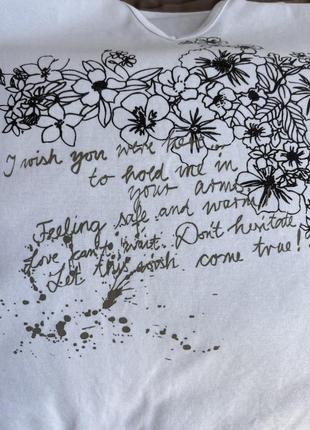 I wish you were here
to hold me in
your arms
Feeling safe and warm
Love can't wait. Don't hesitate
Let this wish come true!